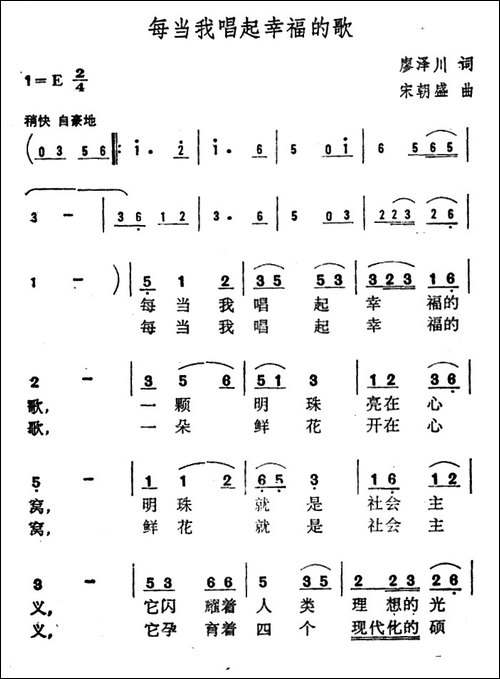 每当我唱起幸福的歌
1=E 2/4
廖泽川 词
宋朝盛 曲
稍快 自豪地
( 0 3 5 6 ‖: 1· 2 | 1· 6 | 5 0 1 | 6 5 6 5 |
3 - | 3 6 1 2 | 3· 6 | 5 0 3 | 2 2 3 2 6 |
1 - ) | 5 1 2 | 3 5 5 3 | 3 2 3 1 6 |
每 当 我 唱 起 幸 福的
每 当 我 唱 起 幸 福的
2 - | 3 5 6 | 5 1 3 | 1 2 3 6 |
歌, 一 颗 明 珠 亮在 心
歌, 一 朵 鲜 花 开在 心
5 - | 1 1 2 | 6 5 3 | 1 6 1 2 |
窝, 明 珠 就 是 社会 主
窝, 鲜 花 就 是 社会 主
3 - | 5 3 6 6 | 5 3 5 | 2 2 3 2 6 |
义, 它闪 耀着 人 类 理 想的 光
义, 它孕 育着 四 个 现代化的 硕